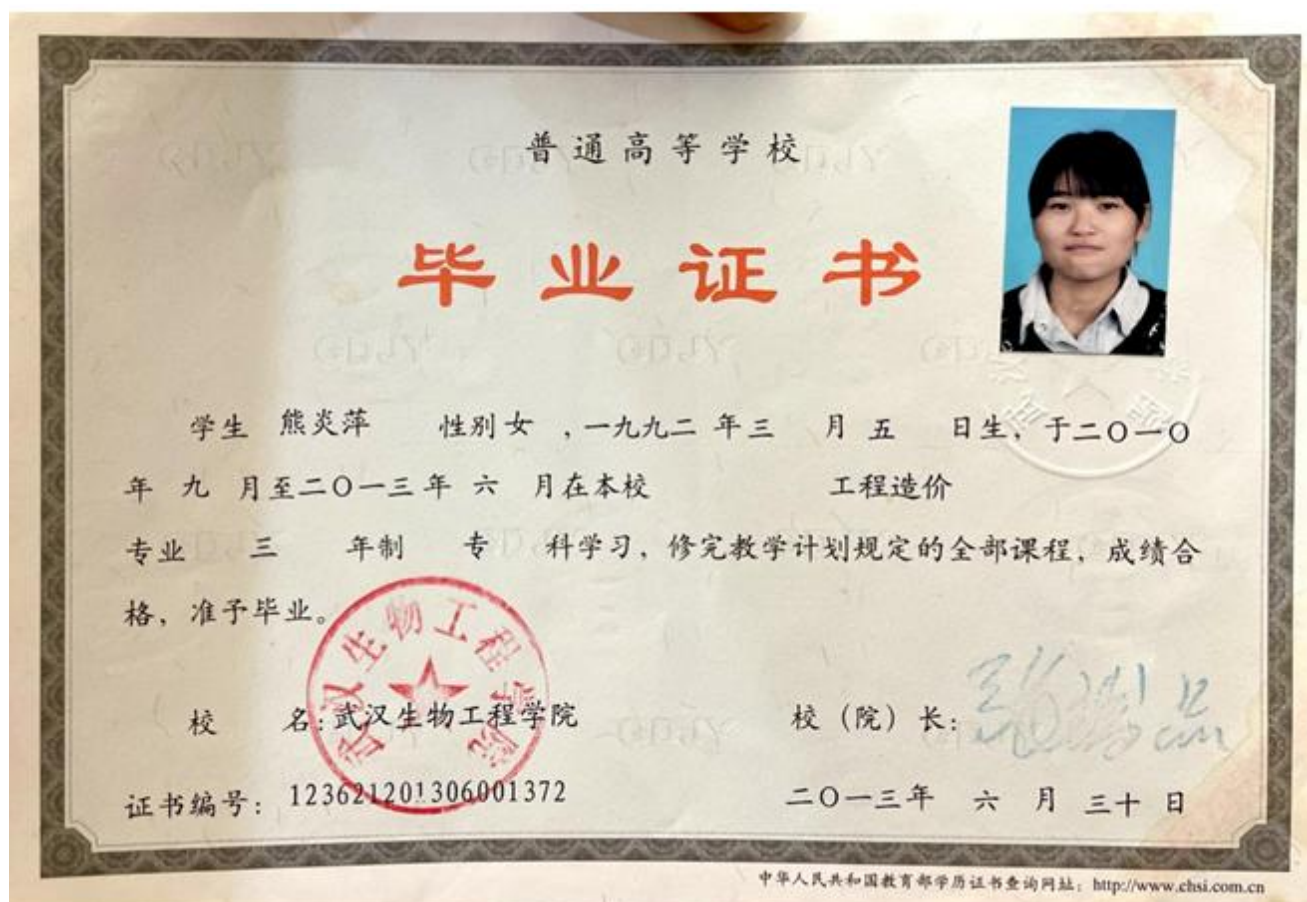 普通高等学校
毕业证书
学生 熊炎萍 性别 女 ,一九九二 年 三 月 五 日生, 于二〇一〇
年 九 月至二〇一三年 六 月在本校 工程造价
专业 三 年制 专 科学习, 修完教学计划规定的全部课程, 成绩合
格, 准予毕业。
武汉生物工程学院
校 名: 武汉生物工程学院 校（院）长:
证书编号: 123621201306001372 二〇一三年 六 月 三十 日
中华人民共和国教育部学历证书查询网址: http://www.chsi.com.cn